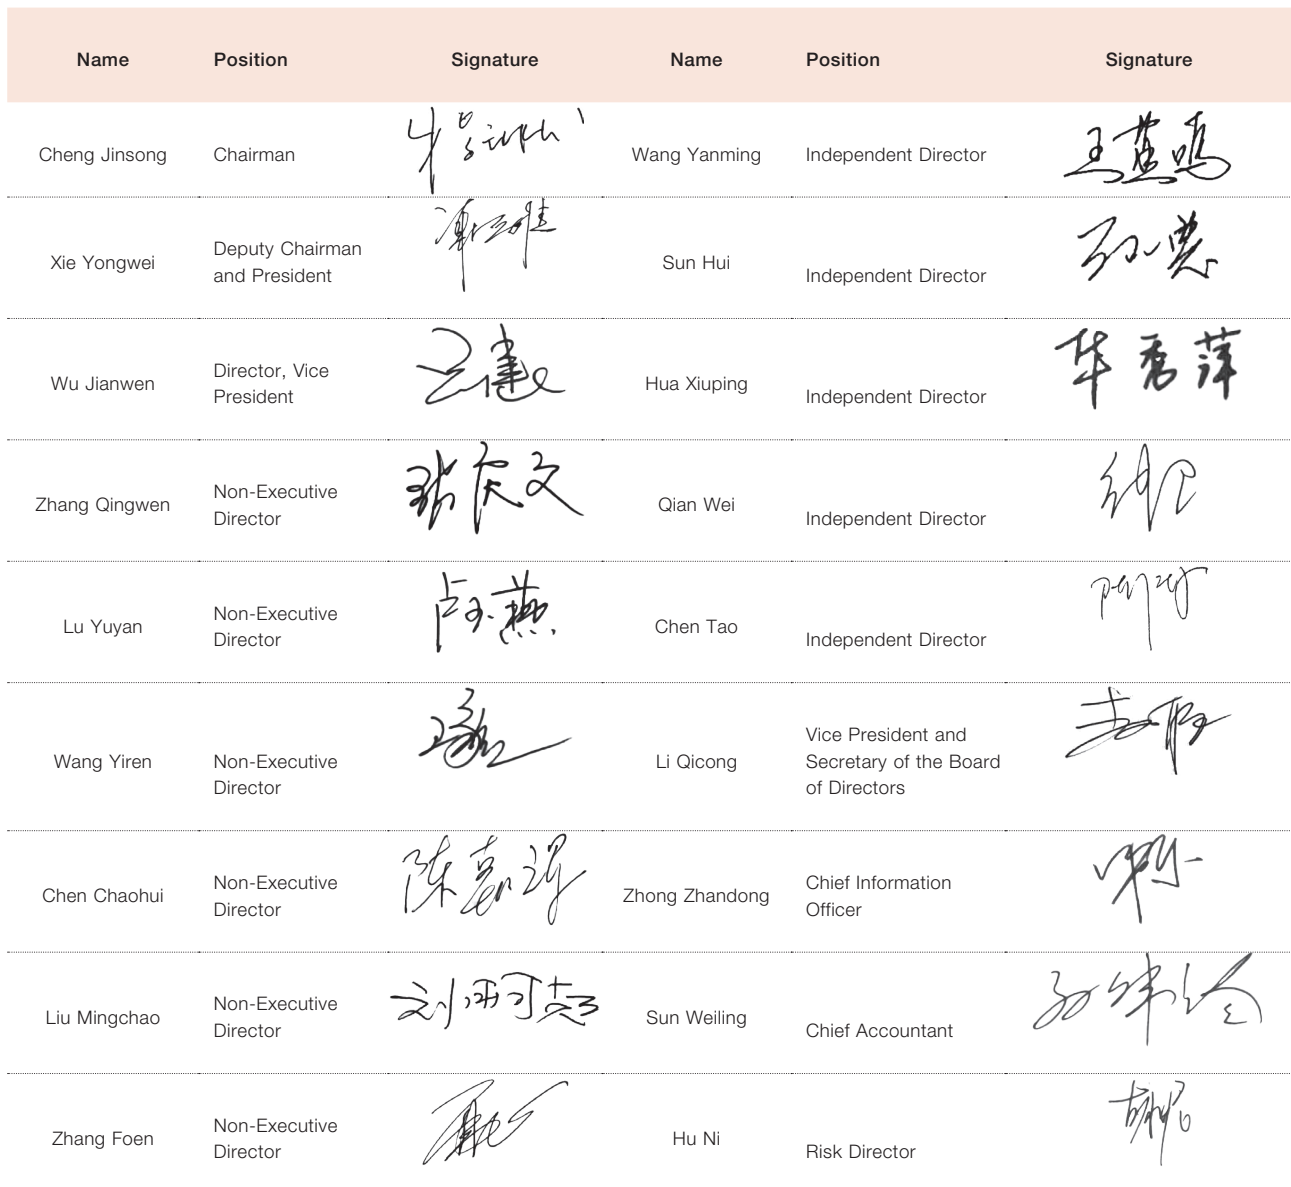 Name Position Signature Name Position Signature
Cheng Jinsong Chairman Wang Yanming Independent Director
Xie Yongwei Deputy Chairman
and President Sun Hui Independent Director
Wu Jianwen Director, Vice
President Hua Xiuping Independent Director 华秀萍
Zhang Qingwen Non-Executive
Director 张庆文 Qian Wei Independent Director
Lu Yuyan Non-Executive
Director 卢玉燕 Chen Tao Independent Director
Wang Yiren Non-Executive
Director Li Qicong Vice President and
Secretary of the Board
of Directors
Chen Chaohui Non-Executive
Director Zhong Zhandong Chief Information
Officer
Liu Mingchao Non-Executive
Director Sun Weiling Chief Accountant
Zhang Foen Non-Executive
Director Hu Ni Risk Director